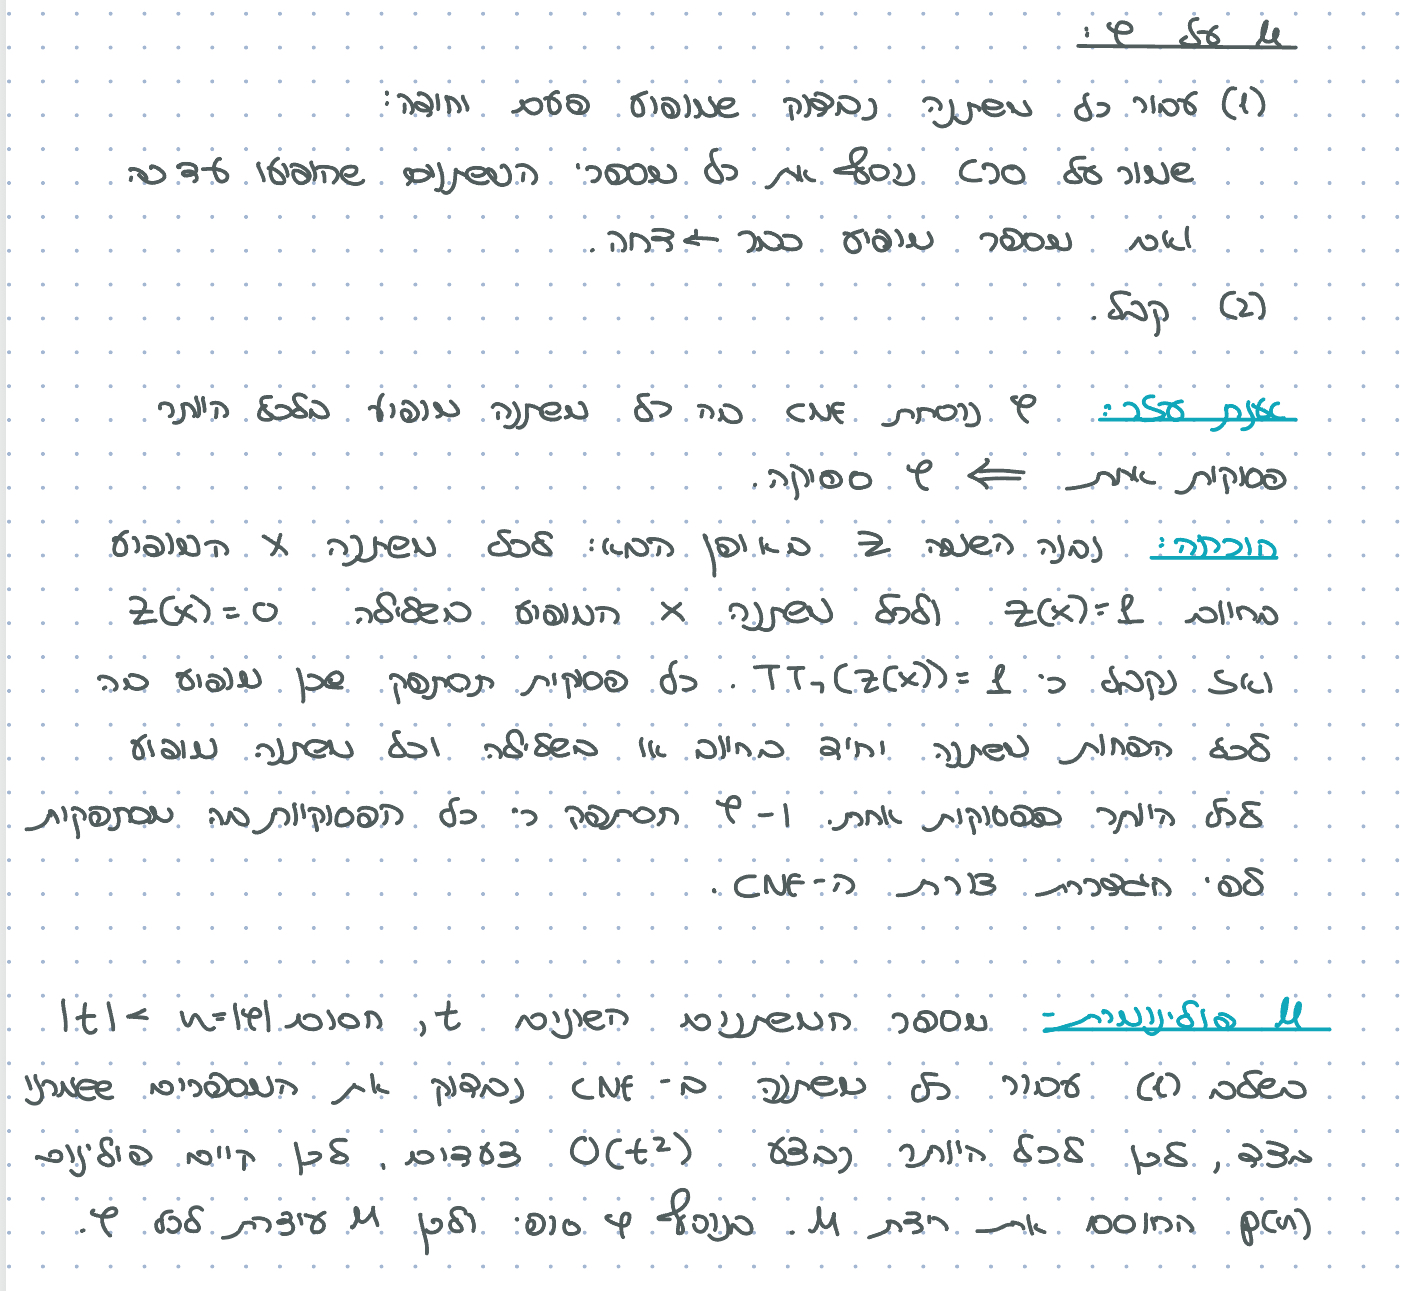 M על φ:
(1) עבור כל משתנה נבדוק שמופיע פעם וחופה:
שמור על סרט נוסף את כל מספרי המשתנים שהופיעו עד כה
ואם מספר מופיע כבר ← דחה.
(2) קבל.
טענת עזר: φ נוסחת CNF בה כל משתנה מופיע בלכל היותר
פסוקית אחת ⇐ φ ספיקה.
הוכחה: נבנה השמה z באופן הבא: לכל משתנה x המופיע
בחיוב z(x)=1 ולכל משתנה x המופיע בשלילה z(x)=0
ואז נקבל כי TT¬(z(x))=1. כל פסקית תסתפק שכן מופיע בה
לכל הפחות משתנה יחיד בחיוב או בשלילה וכל משתנה מופיע
לכל היותר בפסוקית אחת. ו-φ תסתפק כי כל הפסוקיות בה מסתפקות
לפי הגדרת צורת ה-CNF.
M פולינומית- מספר המשתנים השונים t, חסום |t| < n=|φ|
בשלב (1) עבור כל משתנה ב-CNF נבדוק את המספרים ששמרנו
בצד, לכן לכל היותר נבצע O(t²) צעדים, לכן קיים פולינום
p(n) החוסם את ריצת M. בנוסף φ סופי ולכן M עוצרת לכל φ.